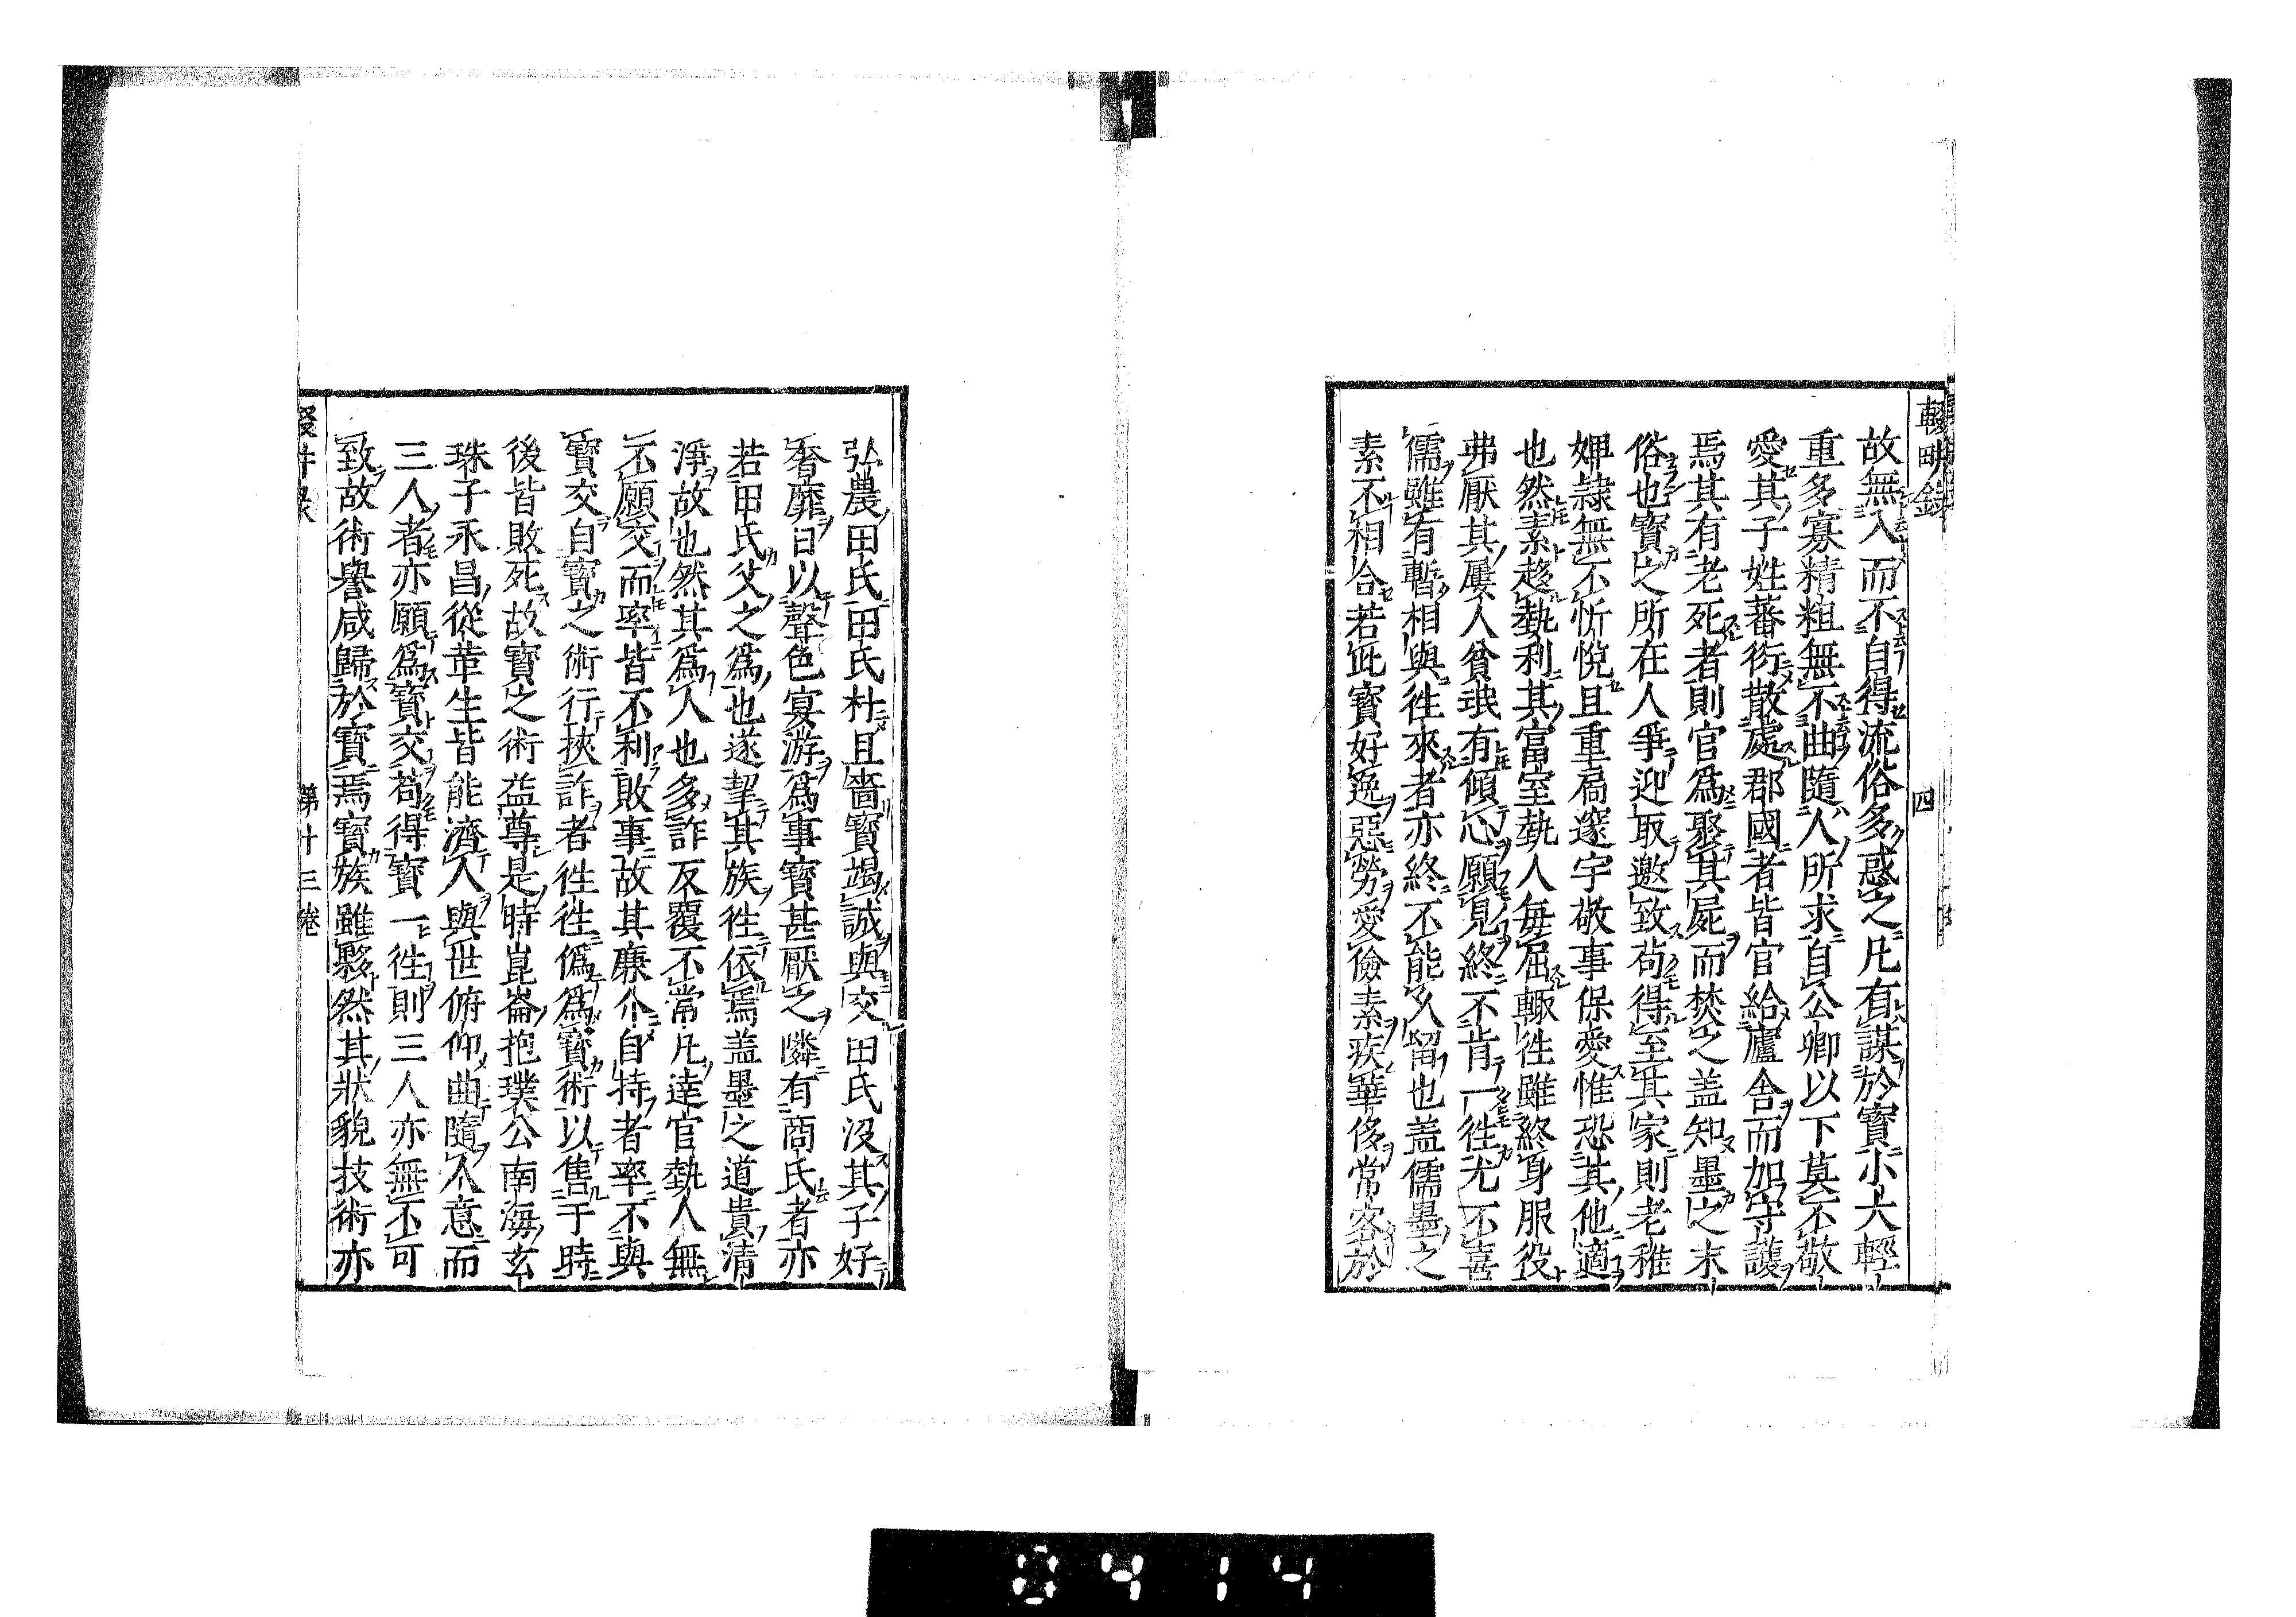 輟畊錄
四
故無入而不自得流俗多惑之凡有謀於寶小大輕
重多寡精粗無不曲隨人所求自公卿以下莫不敬
愛其子姓蕃衍散處郡國者皆官給廬舍而加守護
焉其有老死者則官爲聚其屍而焚之盖知墨之末
俗也寶之所在人爭迎取邀致苟得至其家則老稚
婢隷無不忻悅且重扃邃宇敬事保愛惟恐其他適
也然素趍埶利其富室埶人每屈輙徃雖終身服役
弗厭其屢人貧氓有傾心願見終不肯一徃尤不喜
儒雖有暫相與徃來者亦終不能久留也盖儒墨之
素不相合若此寶好逸惡勞愛儉素疾華侈常客於
弘農田氏田氏朴且嗇寶竭誠與交田氏沒其子好
奢靡日以聲色宴游爲事寶甚厭之隣有商氏者亦
若甲氏父之爲也遂挈其族徃依焉盖墨之道貴清
淨故也然其爲人也多詐反覆不常凡達官埶人無
不願交而率皆不利敗事故其廉介自持者率不與
寶交自寶之術行挾詐者徃徃僞爲寶術以售于時
後皆敗死故寶之術益尊是時崑崙抱璞公南海玄
珠子永昌從革生皆能濟人與世俯仰曲隨人意而
三人者亦願爲寶交苟得寶一徃則三人亦無不可
致故術譽咸歸於寶焉寶族雖夥然其狀貌技術亦
第十三卷
0414